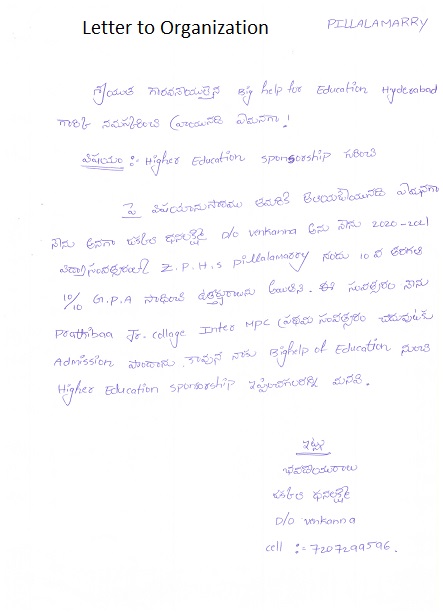 Letter to Organization
PILLALAMARRY
గౌరవనీయులైన Big help for Education Hyderabad
గారికి నమస్కరించి వ్రాయునది ఏమనగా!
విషయం :- Higher Education sponsorship గురించి
పై విషయానుసారము తమరికి తెలియజేయునది ఏమనగా
నేను అనగా ధనలక్ష్మి D/o venkanna అను నేను 2020-2021
విద్యాసంవత్సరంలో Z.P.H.S pillalamarry నందు 10 వ తరగతి
10/10 G.P.A సాధించి ఉత్తీర్ణురాలను అయితిని. ఈ సంవత్సరం నేను
Prathibaa Jr. collage Inter MPC ప్రథమ సంవత్సరం చదువుటకు
Admission పొందాను. కావున నాకు Bighelp of Education నుంచి
Higher Education sponsorship ఇప్పించగలరని మనవి.
ఇట్లు
భవదీయురాలు
ధనలక్ష్మి
D/o venkanna
cell :- 7207299596.